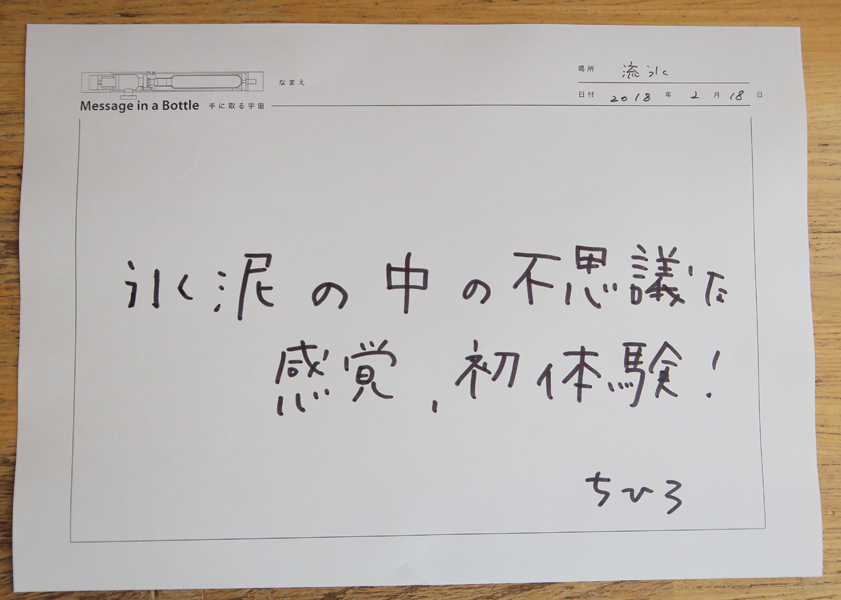 なまえ
場所 流氷
Message in a Bottle 手に取る宇宙
日付 2018 年 2 月 18 日
氷泥の中の不思議な
感覚、初体験!
ちひろ